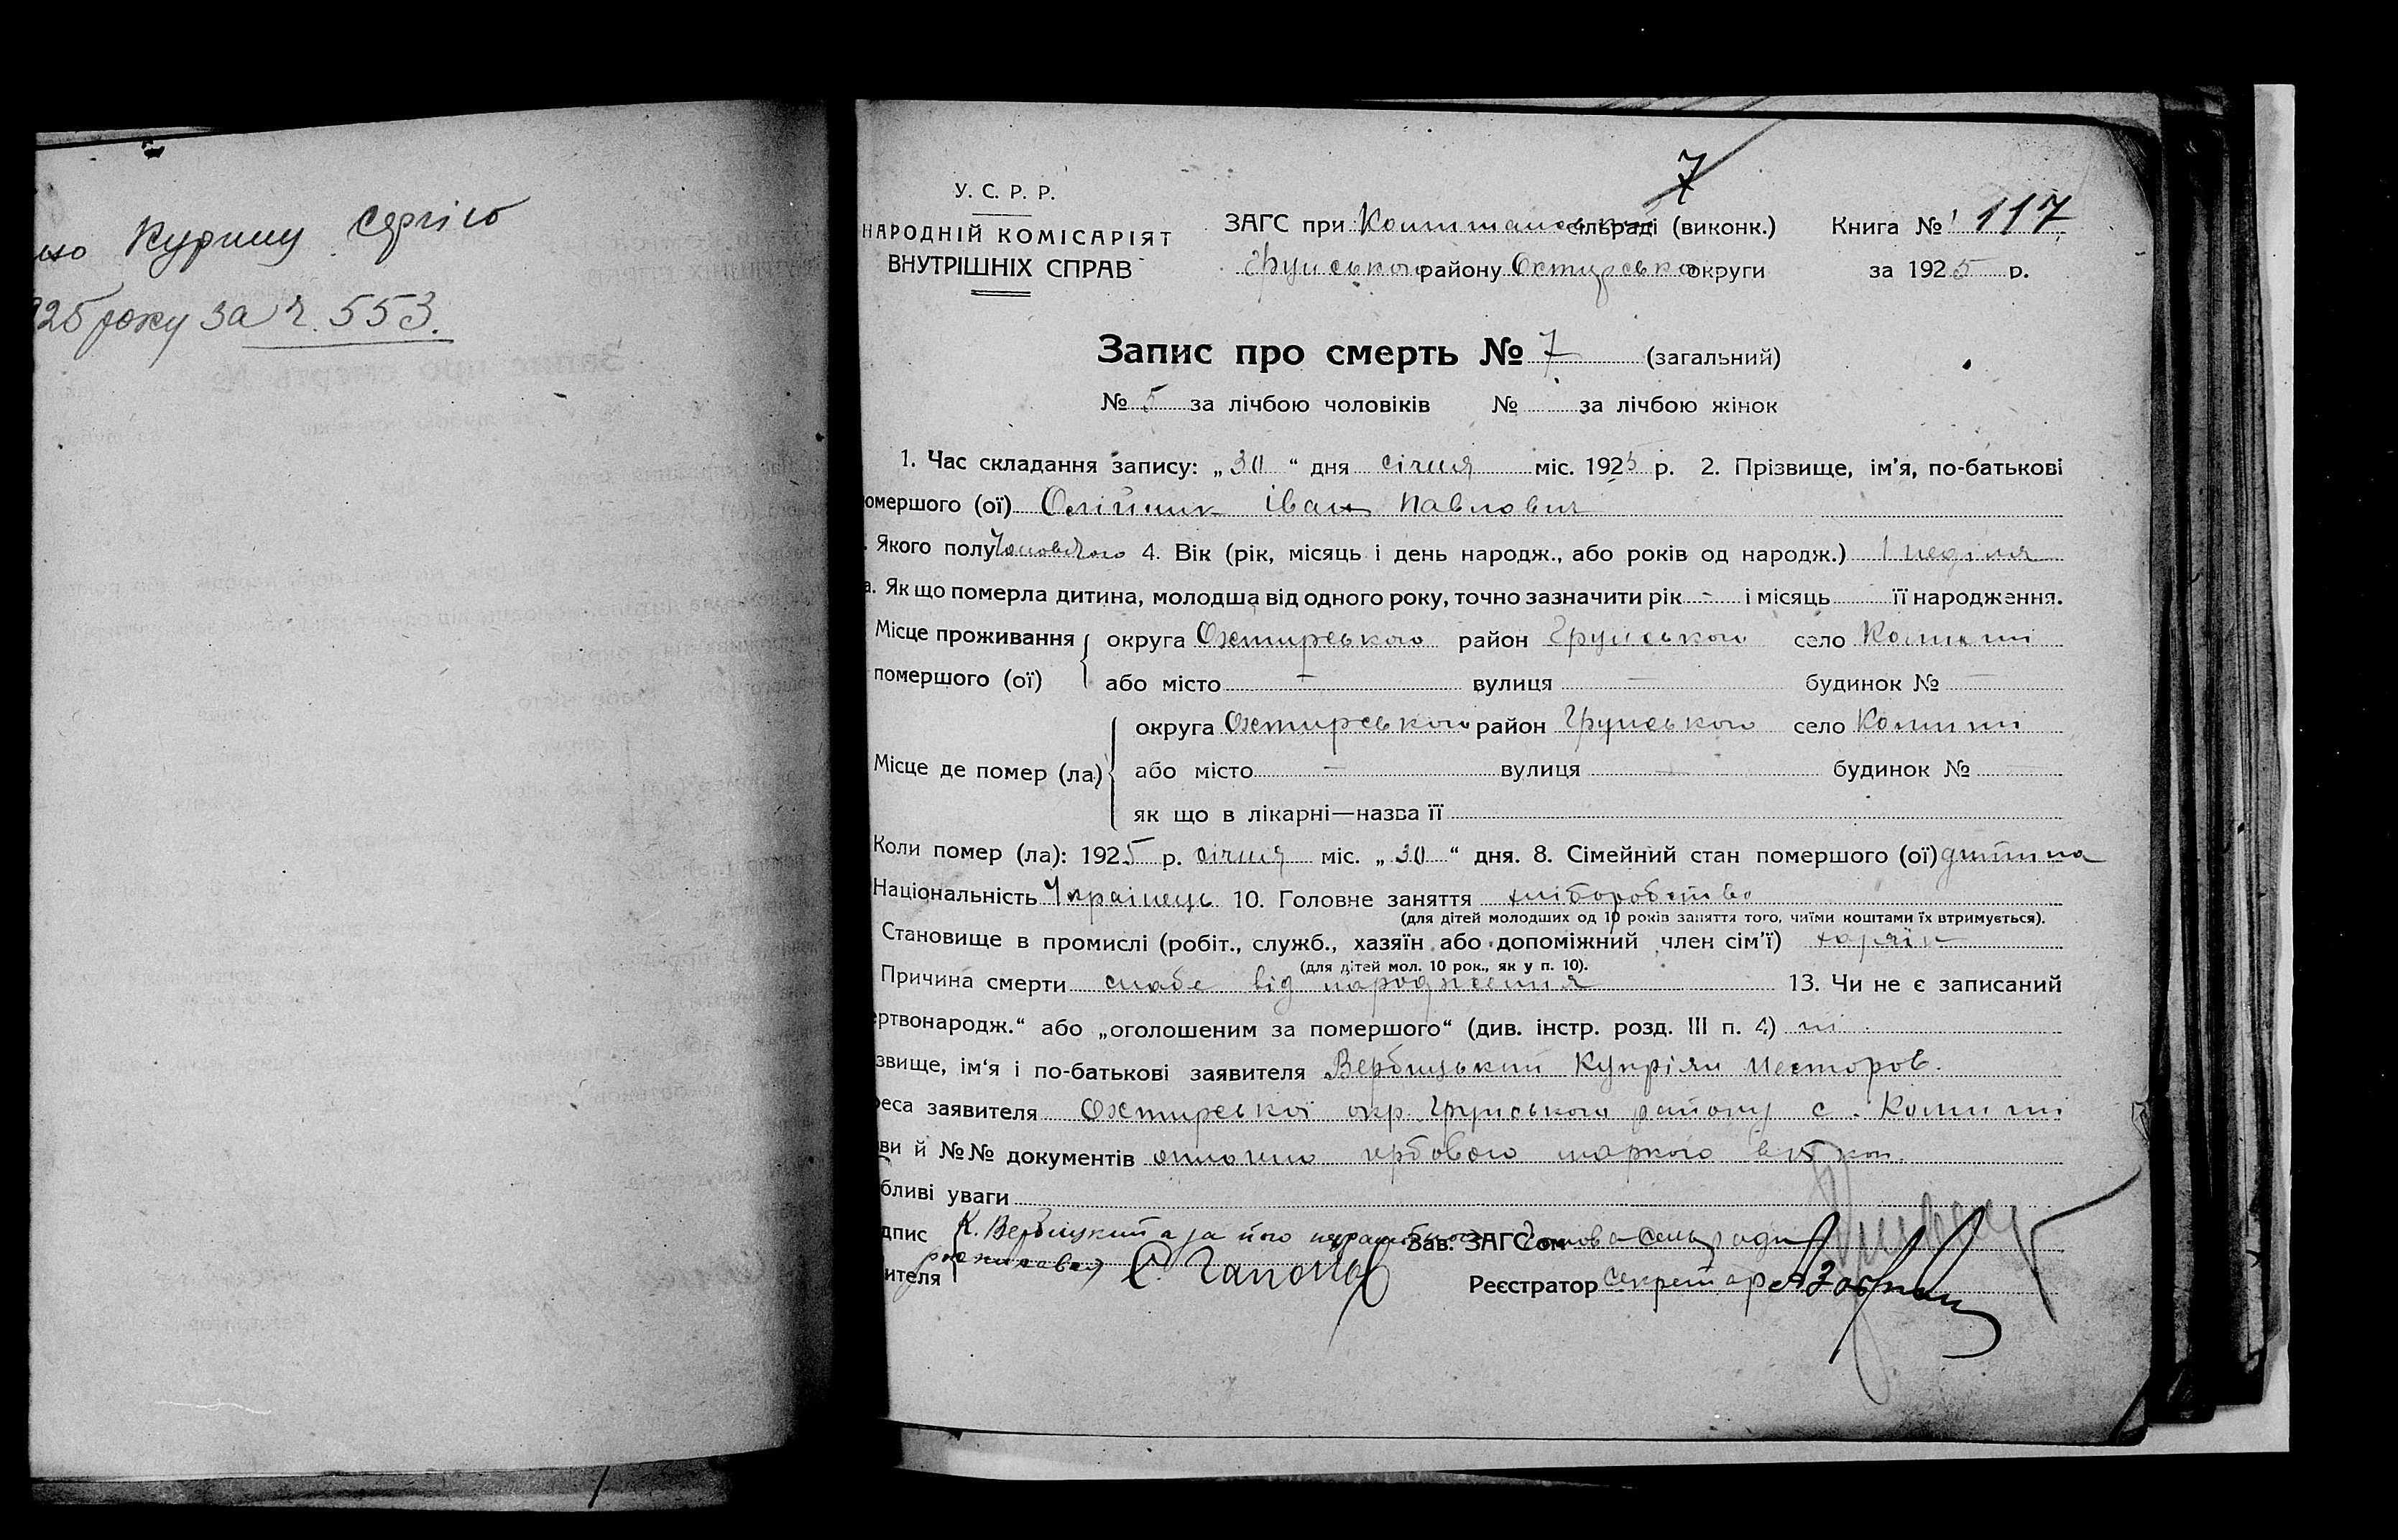 Курилу Сергію
925 року за ч. 553.
7
У. С. Р. Р.
НАРОДНІЙ КОМІСАРІЯТ
ВНУТРІШНІХ СПРАВ
ЗАГС при сільраді (виконк.)
Грунського району Охтирсько округи
Книга № 117
за 1925 р.
Запис про смерть № 7 (загальний)
№ 5 за лічбою чоловіків № за лічбою жінок
1. Час складання запису: „ 30 “ дня січня міс. 1925 р. 2. Прізвище, ім’я, по-батькові
омершого (ої) Олійник Іван Павлович
. Якого полу Чоловічого 4. Вік (рік, місяць і день народж., або років од народж.) 1 неділя
а. Як що померла дитина, молодша від одного року, точно зазначити рік - і місяць її народження.
Місце проживання округа Охтирського район Грунського село
помершого (ої) або місто — вулиця — будинок № —
округа Охтирського район Грунського село
Місце де помер (ла) або місто — вулиця — будинок № —
як що в лікарні—назва її
Коли помер (ла): 1925 р. січня міс. „ 30 “ дня. 8. Сімейний стан помершого (ої) дитина
Національність Українець 10. Головне заняття хліборобство
(для дітей молодших од 10 років заняття того, чиїми коштами їх втримується).
Становище в промислі (робіт., служб., хазяїн або допоміжний член сім’ї) хазяїн
(для дітей мол. 10 рок., як у п. 10).
Причина смерти слабе від народження 13. Чи не є записаний
ертвонародж.“ або „оголошеним за помершого“ (див. інстр. розд. III п. 4) ні
звище, ім‘я і по-батькові заявителя Вербицький Купріян Несторов.
реса заявителя Охтирської окр. Грунського району с.
ви й №№ документів оплочено гербовою маркою в коп.
бливі уваги
дпис К. Вербицкий а за його
ителя росписався
Зав. ЗАГС‘ом Голова Сельради
Реєстратор секретар